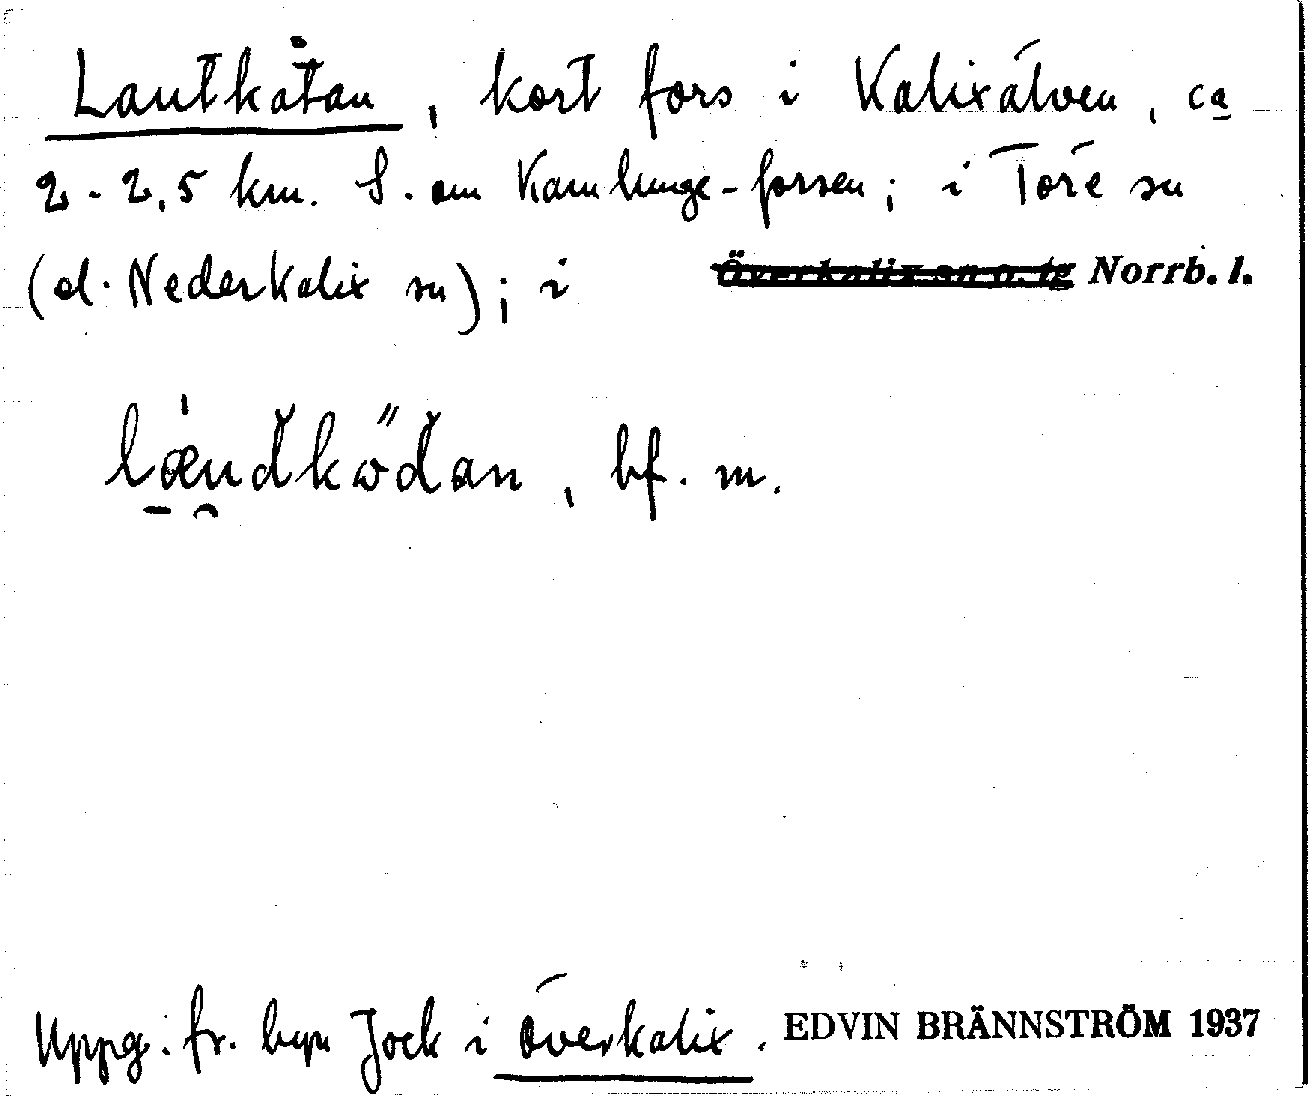 Lantkåtan, kort fors i Kalixälven, ca
2-2,5 km. S. om Kamlunge-forsen; i Töre sn
(el. Nederkalix sn); i Överkalix sn o. tg Norrb. l.
bf. m.
Uppg. fr. byn Jock i Överkalix. EDVIN BRÄNNSTRÖM 1937